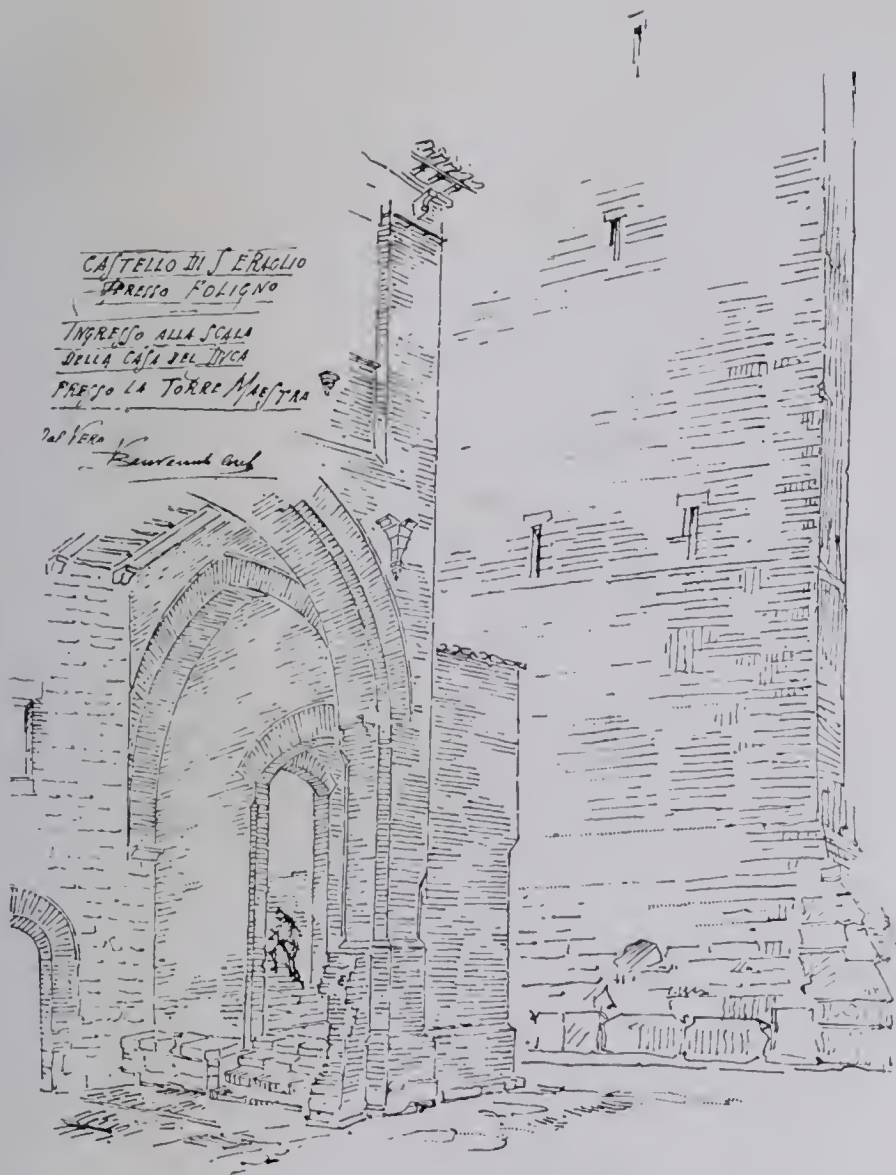 CASTELLO DI SERAGLIO
PRESSO FOLIGNO
INGRESSO ALLA SCALA
DELLA CASA DEL DUCA
PRESSO LA TORRE MAESTRA
Dal VERO